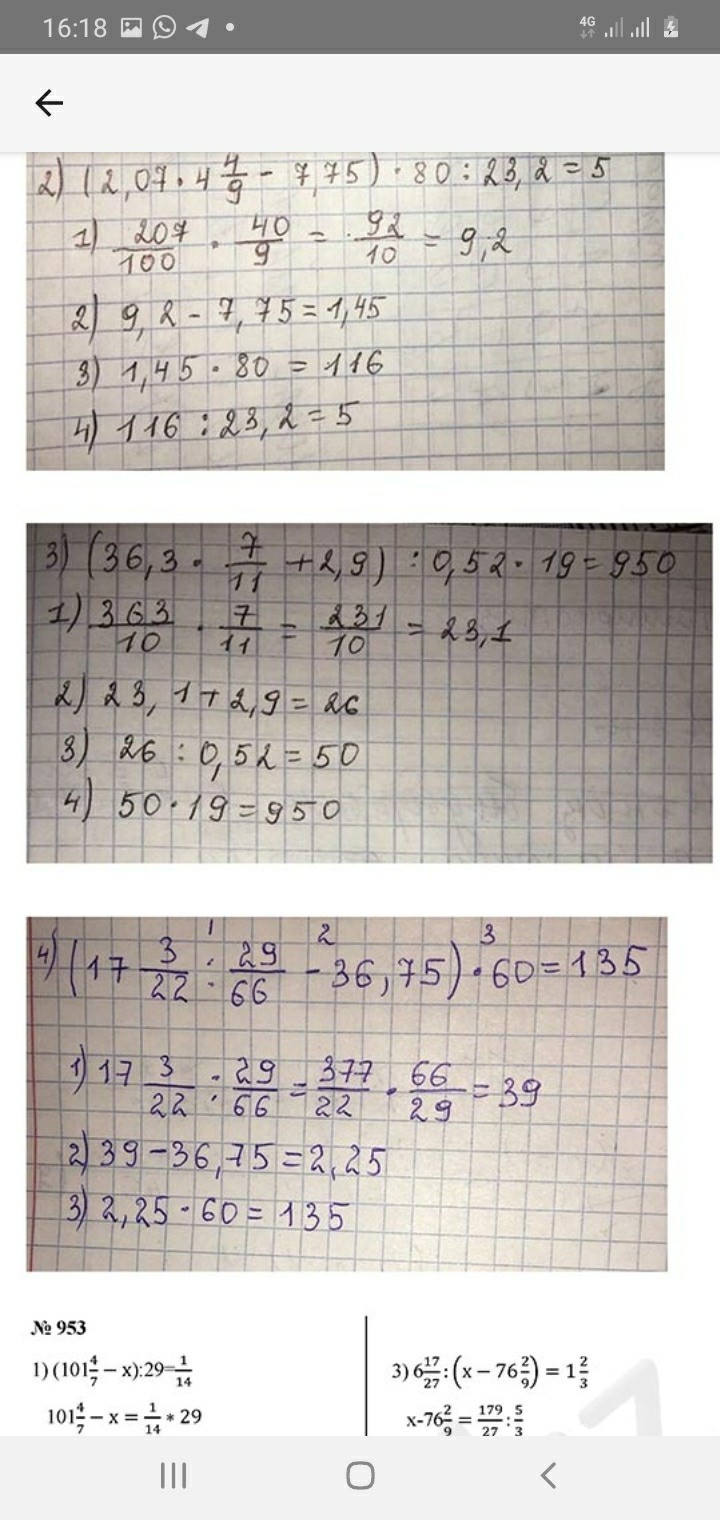 16:18
4G
2) (2,07 · 4 4/9 - 7,75) · 80 : 23,2 = 5
1) 207/100 · 40/9 = 92/10 = 9,2
2) 9,2 - 7,75 = 1,45
3) 1,45 · 80 = 116
4) 116 : 23,2 = 5
3) (36,3 · 7/11 + 2,9) : 0,52 · 19 = 950
1) 363/10 · 7/11 = 231/10 = 23,1
2) 23,1 + 2,9 = 26
3) 26 : 0,52 = 50
4) 50 · 19 = 950
1 2 3
4) (17 3/22 : 29/66 - 36,75) · 60 = 135
1) 17 3/22 : 29/66 = 377/22 · 66/29 = 39
2) 39 - 36,75 = 2,25
3) 2,25 · 60 = 135
№ 953
1) (101 4/7 − x):29=1/14
101 4/7 − x = 1/14 * 29
3) 6 17/27 : (x − 76 2/9) = 1 2/3
x-76 2/9 = 179/27 : 5/3